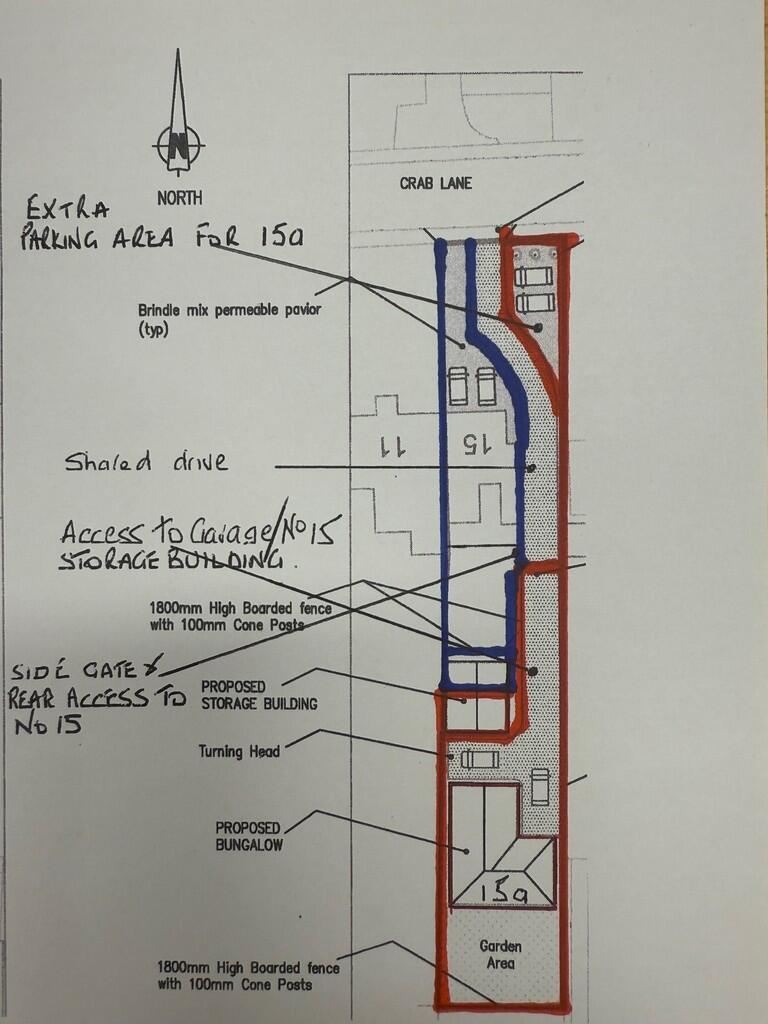 N
NORTH
CRAB LANE
EXTRA
PARKING AREA FOR 15a
Brindle mix permeable pavior
(typ)
11
15
Shared drive
Access to Garage/No 15
STORAGE BUILDING.
1800mm High Boarded fence
with 100mm Cone Posts
SIDE GATE &
REAR ACCESS TO
No 15
PROPOSED
STORAGE BUILDING
Turning Head
PROPOSED
BUNGALOW
15a
Garden
Area
1800mm High Boarded fence
with 100mm Cone Posts